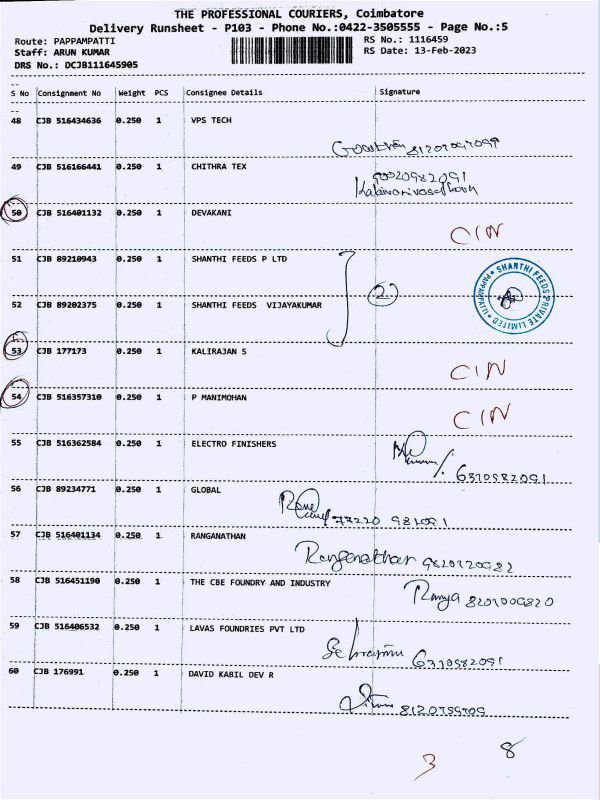 THE PROFESSIONAL COURIERS, Coimbatore
Delivery Runsheet - P103 - Phone No.:0422-3505555 - Page No.:5
Route: PAPPAMPATTI
RS No.: 1116459
Staff: ARUN KUMAR
RS Date: 13-Feb-2023
DRS No.: DCJB111645905
S No Consignment No Weight PCS Consignee Details Signature
48 CJB 516434636 0.250 1 VPS TECH
49 CJB 516166441 0.250 1 CHITHRA TEX
50 CJB 516401132 0.250 1 DEVAKANI
CIN
51 CJB 89210943 0.250 1 SHANTHI FEEDS P LTD
2
SHANTHI FEEDS PRIVATE LIMITED
PAPPAMPATTI
52 CJB 89202375 0.250 1 SHANTHI FEEDS VIJAYAKUMAR
53 CJB 177173 0.250 1 KALIRAJAN S
CIN
54 CJB 516357310 0.250 1 P MANIMOHAN
CIN
55 CJB 516362584 0.250 1 ELECTRO FINISHERS
6370982091
56 CJB 89234771 0.250 1 GLOBAL
57 CJB 516401134 0.250 1 RANGANATHAN
Ranganathan
58 CJB 516451190 0.250 1 THE CBE FOUNDRY AND INDUSTRY
Ramya
59 CJB 516406532 0.250 1 LAVAS FOUNDRIES PVT LTD
6370982091
60 CJB 176991 0.250 1 DAVID KABIL DEV R
3 8